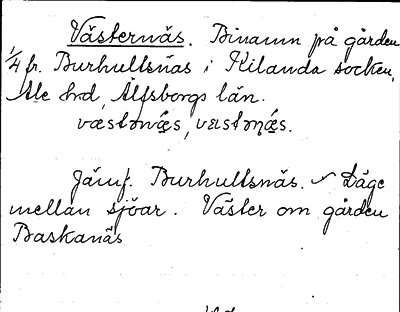 Västernäs. Binamn på gården
1/4 fr. Burhultsnäs i Kilanda socken,
Ale hrd, Älfsborgs län.
Jämf. Burhultsnäs. Läge
mellan sjöar. Väster om gården
Baskanäs